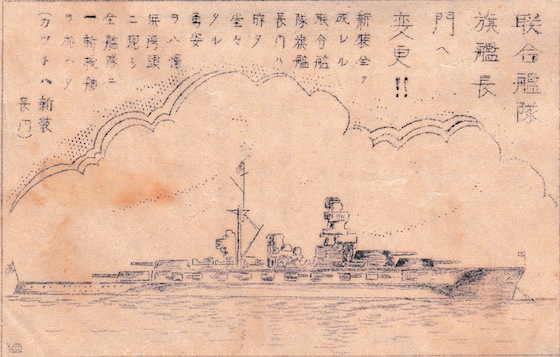 聯合艦隊
旗艦長
門ヘ
変更!!
新装全ク
成レル
聯合艦
隊旗艦
長門ハ
昨夕
堂々
タル
勇姿
ヲ八
湾頭
ニ現シ
全艦隊ニ
一新
ヲ加ヘタ
(カットハ新装
長門)